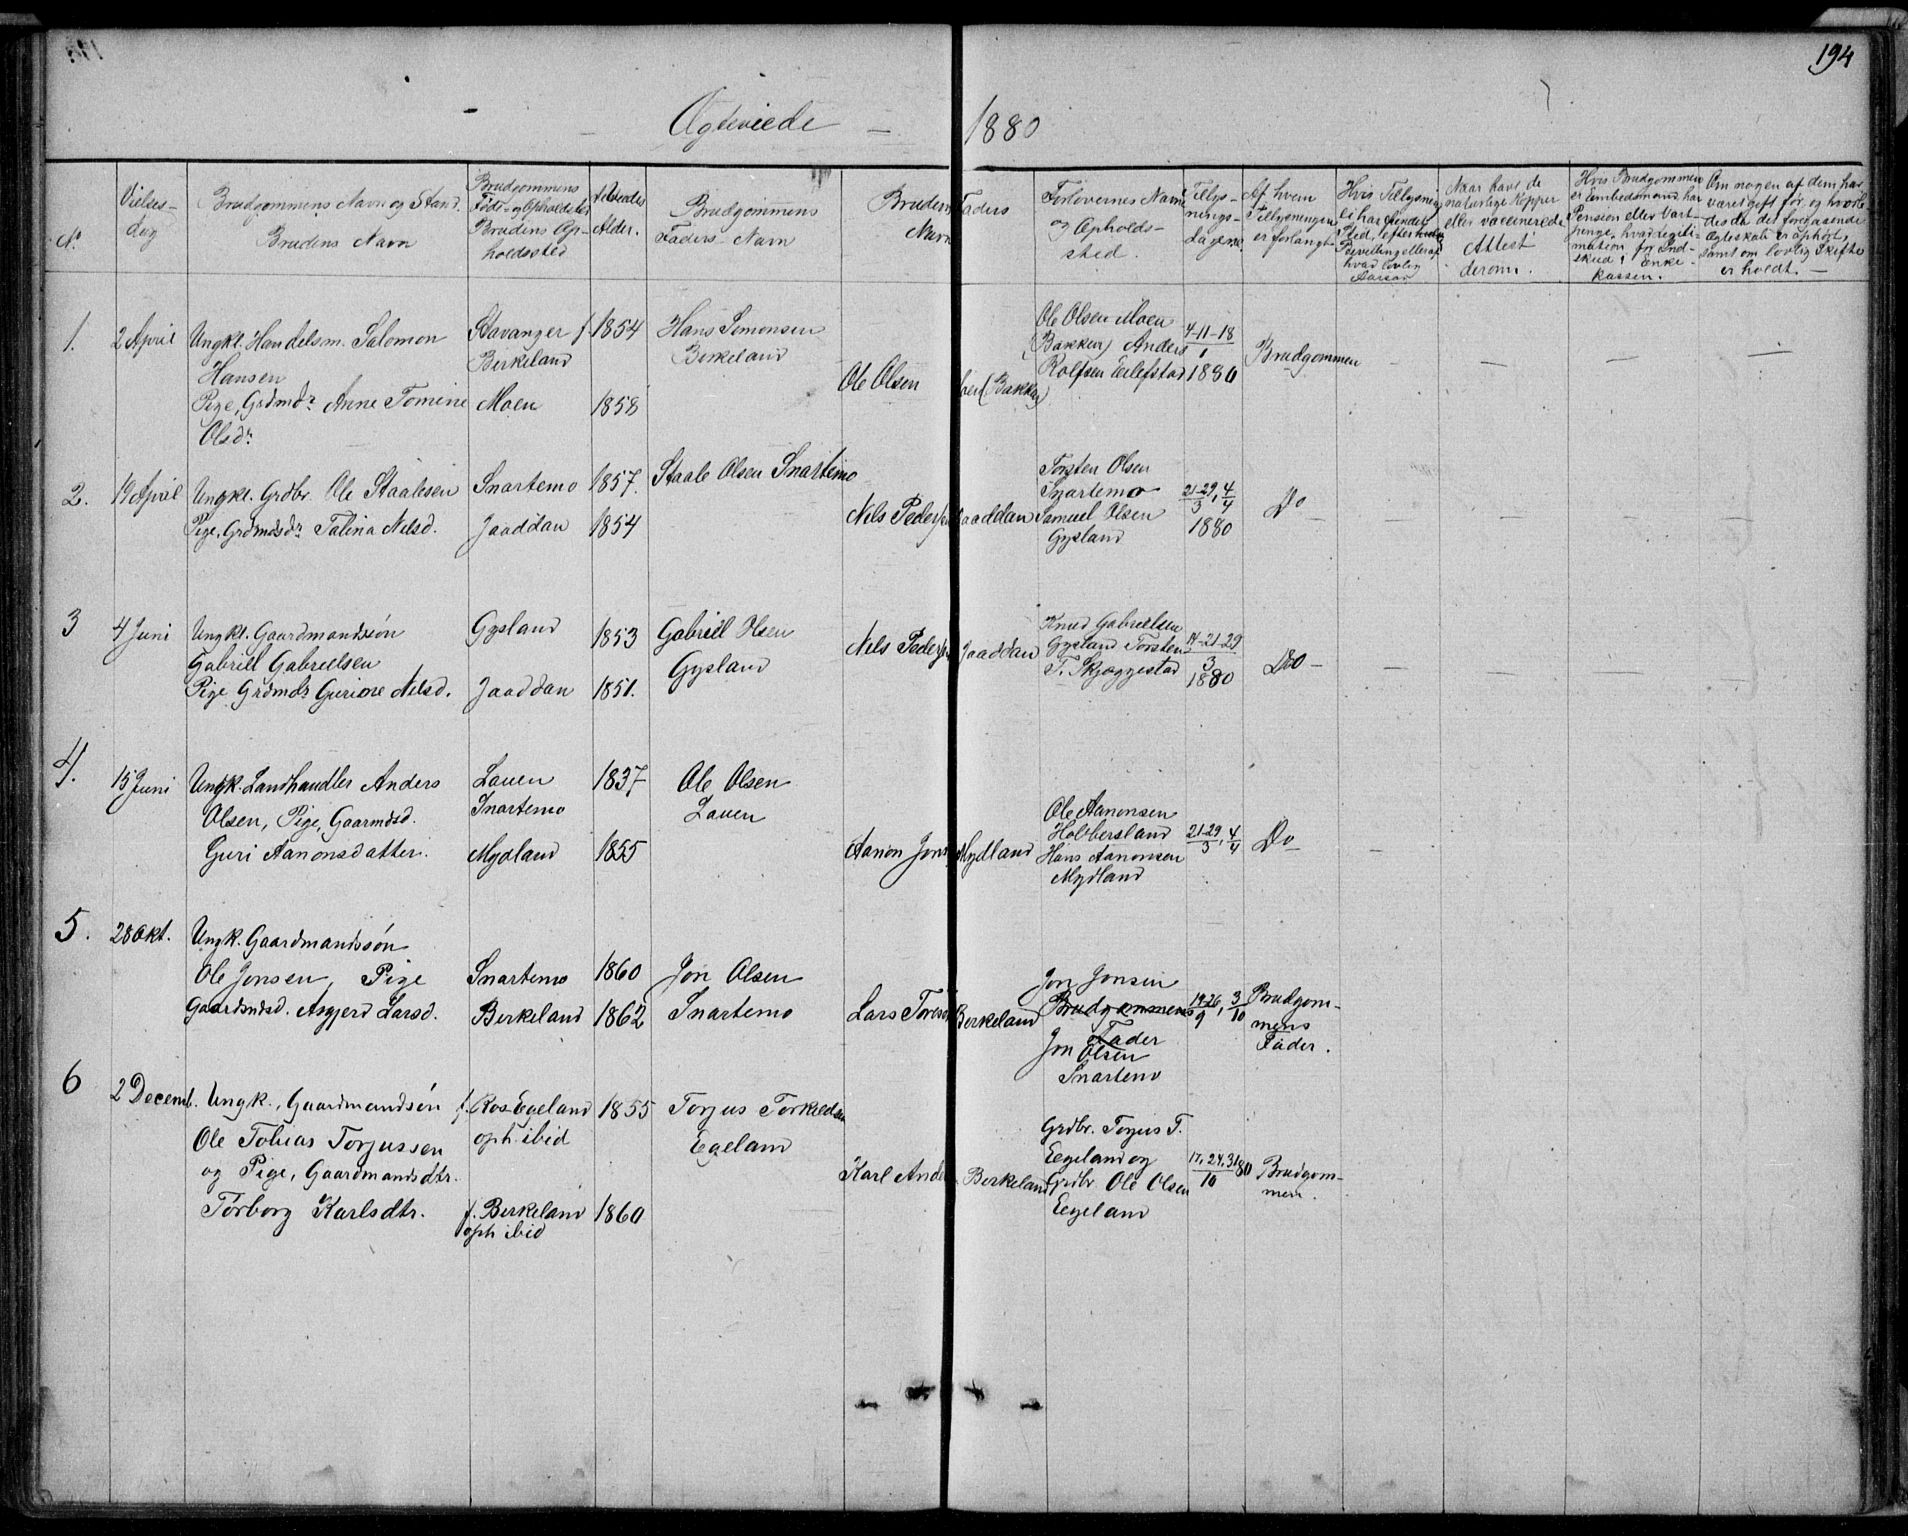 194
Ægteviede — 1880
No.
Vielses-
dag
Brudgommens Navn og Stand.
Brudens Navn
Brudgommens
Føde- og Opholdssted
Brudens Op-
holdssted
Alder.
Brudgommens
Faders Navn
Brudens Faders
Navn
Forlovernes Navn
og Opholds-
sted.
Tillys-
nings-
Dagene
Af hvem
Tillysningen
er forlangt
Hvis Tillysning
ei har fundet
Sted, efter hvilken
Bevilling eller af
hvad lovlig
Aarsag
Naar have de
naturlige Kopper
eller vaccinerede
Attest
derom.
Hvis Brudgommen
er Embedsmand, har
Pension eller Vart-
penge, hvad Legiti-
mation for Ind-
skud i Enke-
kassen.
Om nogen af dem har
været gift før, og hvorle-
des da det foregaaende
Ægteskab er ophørt,
samt om lovlig Skifte
er holdt. —
1.
2 April
Ungkl. Handelsm. Salomon
Hansen
Pige, Grdmdr. Anne Tomine
Olsdr.
Stavanger f.
Berkeland
Moen
1854
1858
Hans Simonsen
Berkeland
Ole Olsen
(Bakken)
Ole Olsen Moen
(Bakken) Anders
Rolfsen Eilefstad
4-11-18
1
1880
Brudgommen
2.
19 April
Ungkl. Grdbr. Ole Staalesen
Pige, Grdmdsdr. Talina Nelsd.
Snartemo
Jaaddan
1857.
1854
Staale Olsen Snartemo
Nils Pedersen Jaaddan
Torsten Olsen
Snartemo
Samuel Olsen
Gysland
21-29, 4
3 4
1880
Do
3
4 Juni
Ungkl. Gaardmandssøn
Gabriel Gabrielsen
Pige Grdmdr Gurine Nelsd.
Gysland
Jaaddan
1853
1851.
Gabriel Olsen
Gysland
Nils Pedersen Jaaddan
Knud Gabrielsen
Gysland Torsten
T. Skjeggestad
14-21-29
3
1880
Do —
4.
15 Juni
Ungk. Landhandler Anders
Olsen, Pige, Gaarmdsd.
Guri Aanonsdatter.
Lauen
Snartemo
Mydland
1837
1855
Ole Olsen
Lauen
Aanon Jons. Mydland
Ole Aanonsen
Holbersland
Hans Aanonsen
Mydland
21-29, 4
3 4
Do
5.
28 Okt.
Ungk. Gaardmandssøn
Ole Jonsen, Pige
Gaardmdsd. Asgjerd Larsd.
Snartemo
Berkeland
1860
1862
Jon Olsen
Snartemo
Lars Tores. Berkeland
Jon Jonsen
Brudgommens
Fader
Jon Olsen
Snartemo
19-26, 3
9 10
Brudgom-
mens
Fader.
6
2 Decemb.
Ungk., Gaardmandsøn
Ole Tobias Torjussen
og Pige, Gaardmandsdtr.
Torborg Karlsdtr.
f. Ros-Egeland
oph. ibid
f. Berkeland
oph ibid
1855
1860
Torjus Torkildsen
Egeland
Karl Ande. Berkeland
Grdbr. Torjus T.
Eegeland og
Grdbr Ole Olsen
Eegeland
17, 24, 31 80
10
Brudgom-
men.